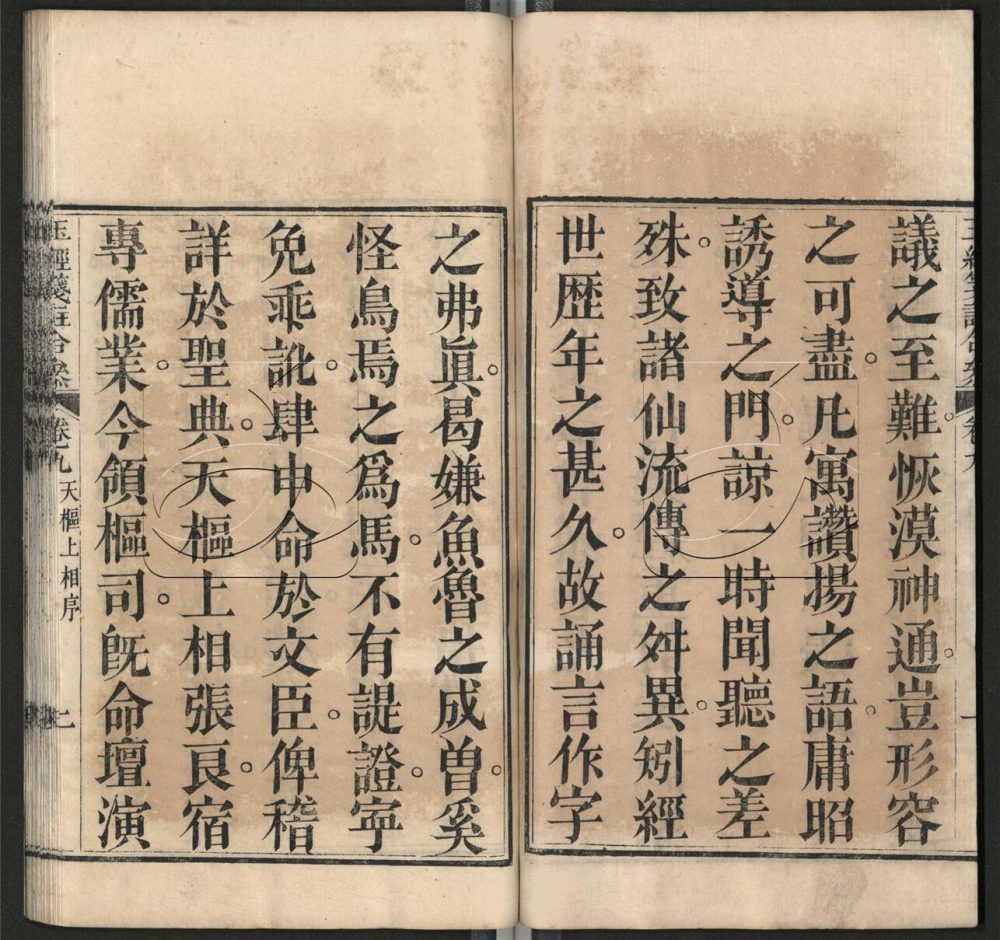 議之至難。恢漠神通。豈形容
之可盡。凡寓讚揚之語。庸昭
誘導之門。諒一時聞聽之差
殊。致諸仙流傳之舛異。矧經
世歴年之甚久。故誦言作字
之弗眞。曷嫌魚魯之成曽。奚
怪鳥焉之爲馬。不有諟證。寜
免乖訛。肆申命於文臣。俾稽
詳於聖典。天樞上相張良。宿
專儒業。今領樞司。旣命壇演
玉經箋註合叅 卷九 天樞上相序 七